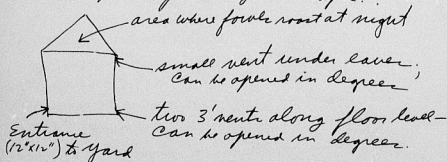 area where fowls roost at night
small vent under eaves;
can be opened in degrees
two 3' vents along floor level-
can be opened in degrees.
Entrance
(12"x12") to yard